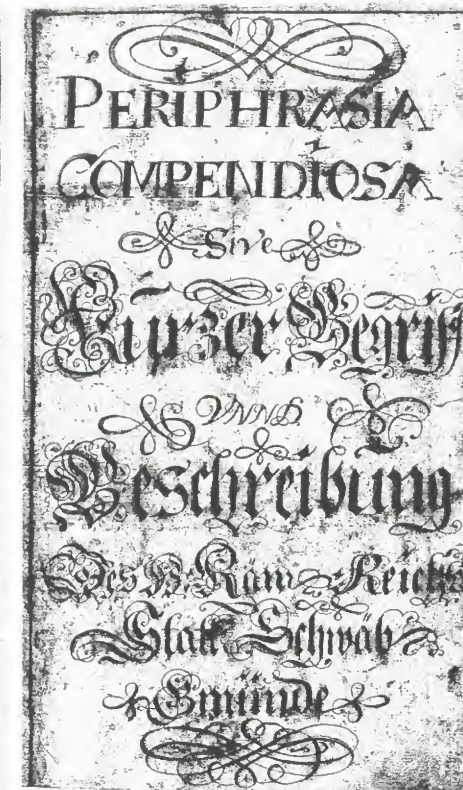 PERIPHRASIA
COMPENDIOSA
Sive
Kurzer Begriff
VNND
Beschreibung
Des H. Röm: Reichs
Statt Schwäb
Gmünde